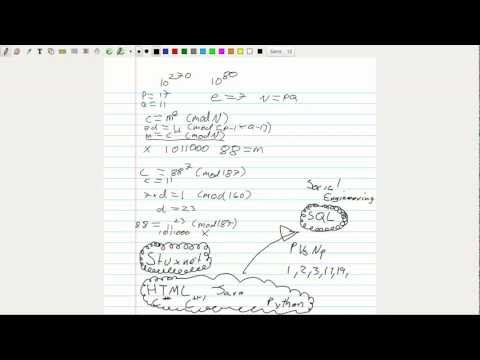 10^270 10^80
P = 17
Q = 11
e = 7 N = PQ
C = m^e (mod N)
(mod (P-1)(Q-1))
m = C (mod N)
X 1011000 88 = m
C = 88^7 (mod 187)
C = 11
7*d = 1 (mod 160)
d = 23
88 = 11^23 (mod 187)
1011000 X
Social
Engineering
SQL
Stuxnet
P Vs Np
1, 2, 3, 17, 19,
HTML Java
C C++, Python